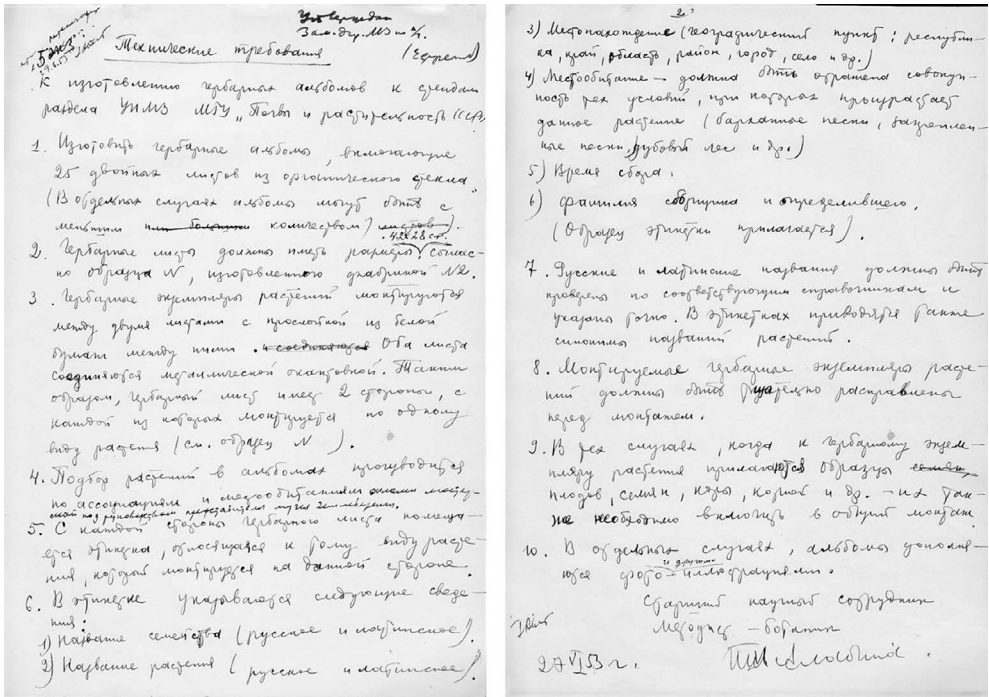 Утверждаю
Зам. дир. МЗ
5 экз
Технические требования
(Ефремов)
К изготовлению гербарных альбомов к стендам
раздела УНМЗ МГУ „Почвы и растительность СССР
1. Изготовить гербарные альбомы, включающие
25 двойных листов из органического стекла.
(В отдельных случаях альбомы могут быть с
меньшим или большим количеством) листов).
42х28 см.
2. Гербарные листы должны иметь размеры, соглас-
но образца N, изготовленного фабрикой №2.
3. Гербарные экземпляры растений монтируются
между двумя листами с прослойкой из белой
бумаги между ними. и соединяются Оба листа
соединяются металлической окантовкой. Таким
образом, гербарный лист имеет 2 стороны, с
каждой из которых монтируется по одному
виду растения (см. образец N ).
4. Подбор растений в альбомах производится
по ассоциациям и местообитаниям
под руководством
5. С каждой стороны гербарного листа помеща-
ется этикетка, относящаяся к тому виду расте-
ния, который монтируется на данной стороне.
6. В этикетке указываются следующие сведе-
ния:
1) Название семейства (русское и латинское).
2) Название растения (русское и латинское).
2.
3) Местонахождение (географический пункт: республи-
ка, край, область, район, город, село и др.)
4) Местообитание – должна быть отражена совокуп-
ность тех условий, при которых произрастает
данное растение (барханные пески, закреплен-
ные пески, дубовый лес и др.)
5) Время сбора.
6) Фамилия сборщика и определившего.
(Образец этикетки прилагается).
7. Русские и латинские названия должны быть
проверены по соответствующим справочникам и
указаны точно. В этикетках приводятся также
синонимы названий растений.
8. Монтируемые гербарные экземпляры расте-
ний должны быть тщательно расправлены
перед монтажем.
9. В тех случаях, когда к гербарному экзем-
пляру растения прилагаются образцы семян,
плодов, семян, коры, корней и др. – их так-
же необходимо включить в общий монтаж
10. В отдельных случаях, альбомы дополня-
и другими
ются фото–иллюстрациями.
Старший научный сотрудник
Методист – ботаник
27 VI 53 г.